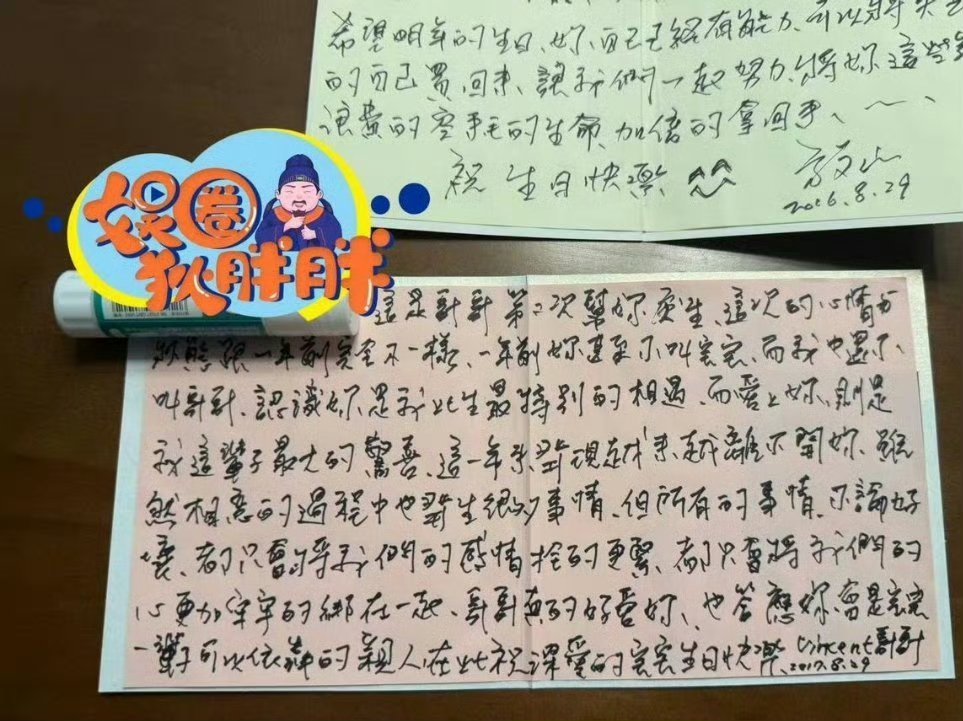 希望明年的生日、妳、自己已經有能力、可以將失去
的自己買回來、讓我們一起努力、將妳這些年
浪費的寶貴的生命加倍的拿回來、
祝 生日快樂 ^^
2016.8.29
娛圈
狄胖胖
這是哥哥第二次幫妳慶生、這次的心情與
狀態跟一年前完全不一樣、一年前妳甚至不叫宝宝、而我也還不
叫哥哥、認識妳是我此生最特別的相遇、而愛上妳、則是
我這輩子最大的驚喜、這一年來發現越來越離不開妳、雖
然相戀的過程中也發生很多事情、但所有的事情、不論好
壞、都只會將我們的感情拴的更緊、都只會將我們的
心更加牢牢的綁在一起、哥哥真的好愛妳、也答應妳會是宝宝
一輩子可以依靠的親人在此祝深愛的宝宝生日快樂 Vincent哥哥
2017.8.29